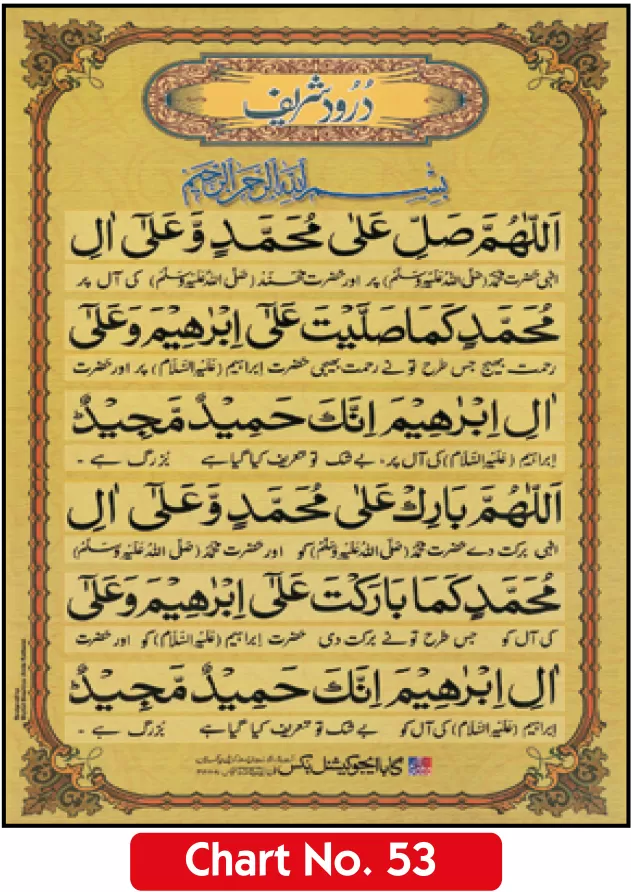 دُرُود شریف
بِسْمِ اللّٰهِ الرَّحْمٰنِ الرَّحِيْمِ
اَللّٰهُمَّ صَلِّ عَلٰى مُحَمَّدٍ وَّعَلٰٓى اٰلِ
الٰہی حضرت محمّد (صَلَّی اللہُ عَلَیْہِ وَسَلَّم) پر اور حضرت محمّد (صَلَّی اللہُ عَلَیْہِ وَسَلَّم) کی آل پر
مُحَمَّدٍ كَمَا صَلَّيْتَ عَلٰٓى اِبْرٰهِيْمَ وَعَلٰٓى
رحمت بھیج جس طرح تونے رحمت بھیجی حضرت اِبراہیم (عَلَیْہِ السَّلَام) پر اور حضرت
اٰلِ اِبْرٰهِيْمَ اِنَّكَ حَمِيْدٌ مَّجِيْدٌ
اِبراہیم (عَلَیْہِ السَّلَام) کی آل پر، بے شک تو تعریف کیا گیا ہے بُزرگ ہے ۔
اَللّٰهُمَّ بَارِكْ عَلٰى مُحَمَّدٍ وَّعَلٰٓى اٰلِ
الٰہی برکت دے حضرت محمّد (صَلَّی اللہُ عَلَیْہِ وَسَلَّم) کو اور حضرت محمّد (صَلَّی اللہُ عَلَیْہِ وَسَلَّم)
مُحَمَّدٍ كَمَا بَارَكْتَ عَلٰٓى اِبْرٰهِيْمَ وَعَلٰٓى
کی آل کو جس طرح تونے برکت دی حضرت اِبراہیم (عَلَیْہِ السَّلَام) کو اور حضرت
اٰلِ اِبْرٰهِيْمَ اِنَّكَ حَمِيْدٌ مَّجِيْدٌ
اِبراہیم (عَلَیْہِ السَّلَام) کی آل کو بے شک تو تعریف کیا گیا ہے بُزرگ ہے ۔
گابا ایجوکیشنل بکس
Chart No. 53